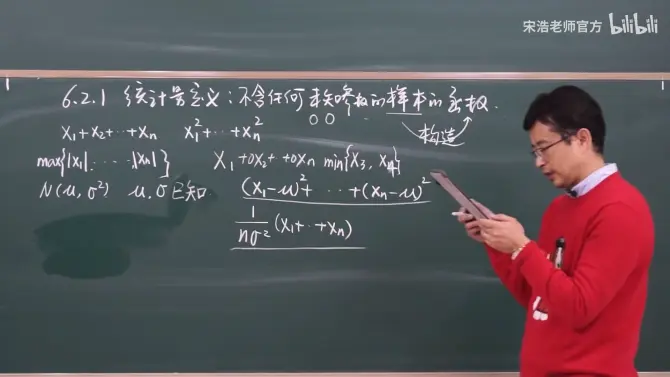 宋浩老师官方 bilibili
6.2.1 统计量定义:不含任何未知参数的样本的函数.
构造
X₁+X₂+⋯+Xₙ X₁²+⋯+Xₙ²
max{|X₁|,⋯,|Xₙ|} X₁+0X₂+⋯+0Xₙ min{X₃, X₄}
N(μ,σ²) μ,σ已知 (X₁-μ)²+⋯+(Xₙ-μ)²
1/nσ² (X₁+⋯+Xₙ)